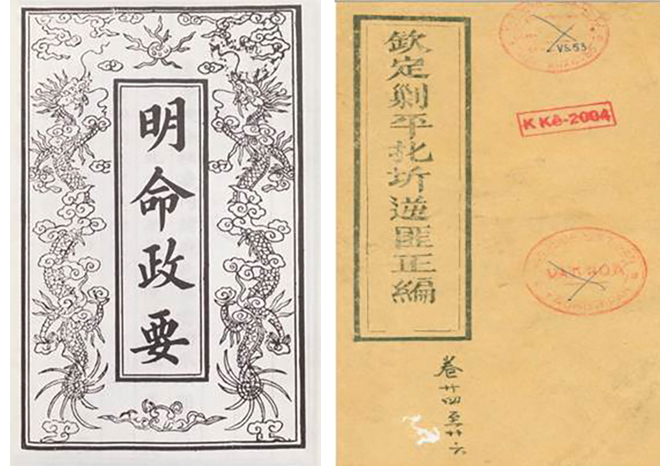 明命政要
欽定剿平北圻逆匪正編
卷廿四至廿六
VS.53
K Kê-2004